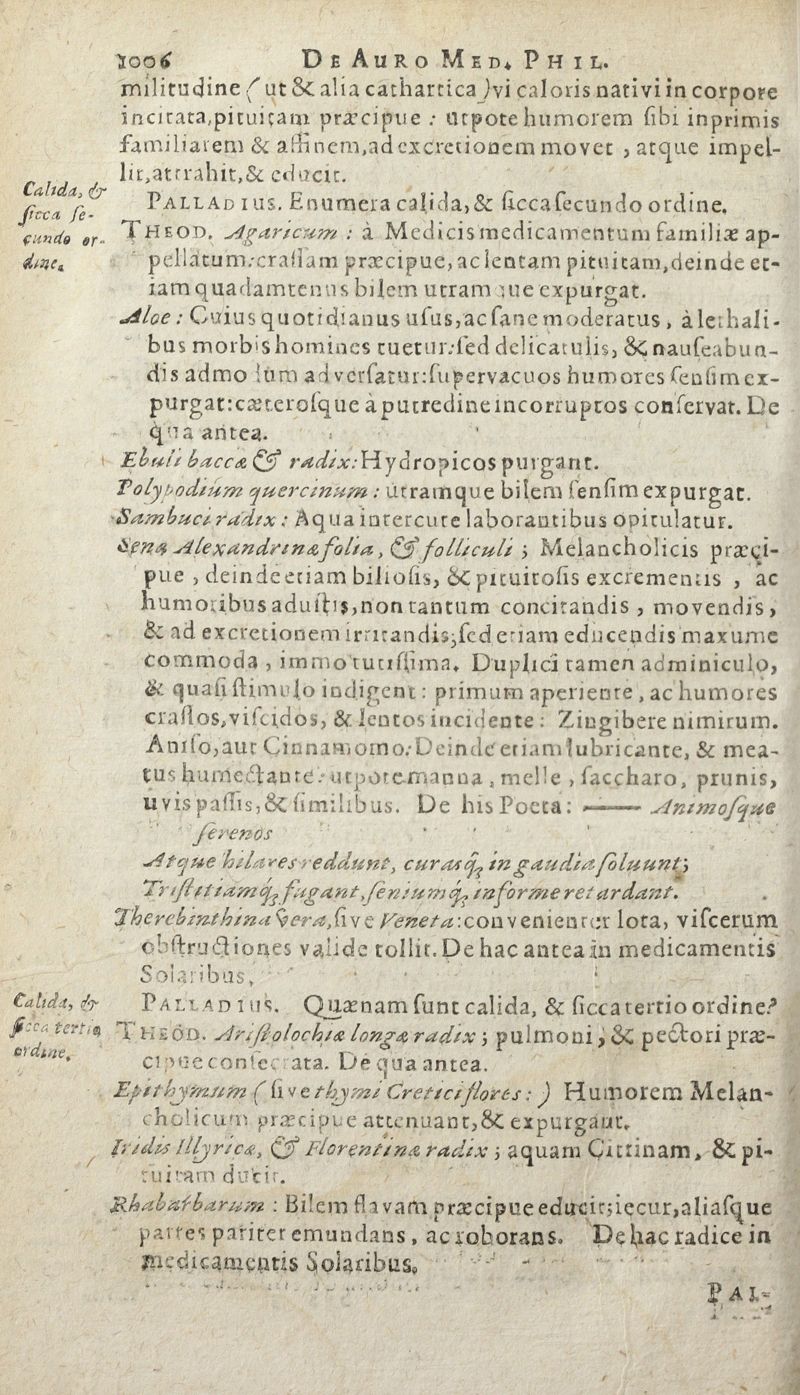 1006 DE AURO MED. PHIL.
militudine (ut & alia cathartica) vi caloris nativi in corpore
incitata, pituitam præcipue : utpote humorem sibi inprimis
familiarem & affinem, ad excretionem movet , atque impel-
lit, attrahit, & educit.
Calida, &
sicca se-
cundo or-
dine.
PALLADIUS. Enumera calida, & sicca secundo ordine.
THEOD. Agaricum : à Medicis medicamentum familiæ ap-
pellatum: crassam præcipue, ac lentam pituitam, deinde et-
iam quadamtenus bilem utramque expurgat.
Aloe : Cuius quotidianus usus, ac sane moderatus , à lethali-
bus morbis homines tuetur: sed delicatulis, & nauseabun-
dis admodum adversatur: supervacuos humores sensim ex-
purgat: cæterosque à putredine incorruptos conservat. De
qua antea.
Ebuli baccæ & radix: Hydropicos purgant.
Polypodium quercinum : utramque bilem sensim expurgat.
Sambuci radix : Aqua intercute laborantibus opitulatur.
Senæ Alexandrinæ folia, & folliculi ; Melancholicis præci-
pue , deinde etiam biliosis, & pituitosis excrementis , ac
humoribus adustis, non tantum concitandis , movendis,
& ad excretionem irritandis; sed etiam educendis maxume
commoda , immo tutissima. Duplici tamen adminiculo,
& quasi stimulo indigent : primum aperiente , ac humores
crassos, viscidos, & lentos incidente : Zingibere nimirum.
Aniso, aut Cinnamomo: Deinde etiam lubricante, & mea-
tus humectante: utpote manna , melle , saccharo, prunis,
uvis passis, & similibus. De his Poeta: —— Animosque
serenos
Atque hilares reddunt, curasq; in gaudia soluunt;
Tristitiamq; fugant, senium q; informe retardant.
Therebinthina vera, sive Veneta: convenienter lota, viscerum
obstructiones valide tollit. De hac antea in medicamentis
Solaribus.
Calida, &
sicca tertio
ordine.
PALLADIUS. Quænam sunt calida, & sicca tertio ordine?
THEOD. Aristolochiæ longæ radix ; pulmoni, & pectori præ-
cipue consecrata. De qua antea.
Epithymum ( sive thymi Cretici flores : ) Humorem Melan-
cholicum præcipue attenuant, & expurgant.
Iridis Illyricæ, & Florentinæ radix ; aquam Citrinam, & pi-
tuitam ducit.
Rhabarbarum : Bilem flavam præcipue educit; iecur, aliasque
partes pariter emundans, ac roborans. De hac radice in
medicamentis Solaribus.
PAL-